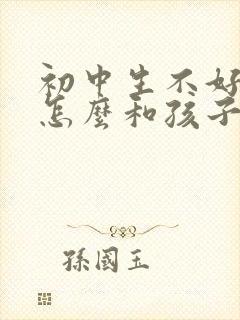 初中生不好
怎麼和孩子
孫國玉